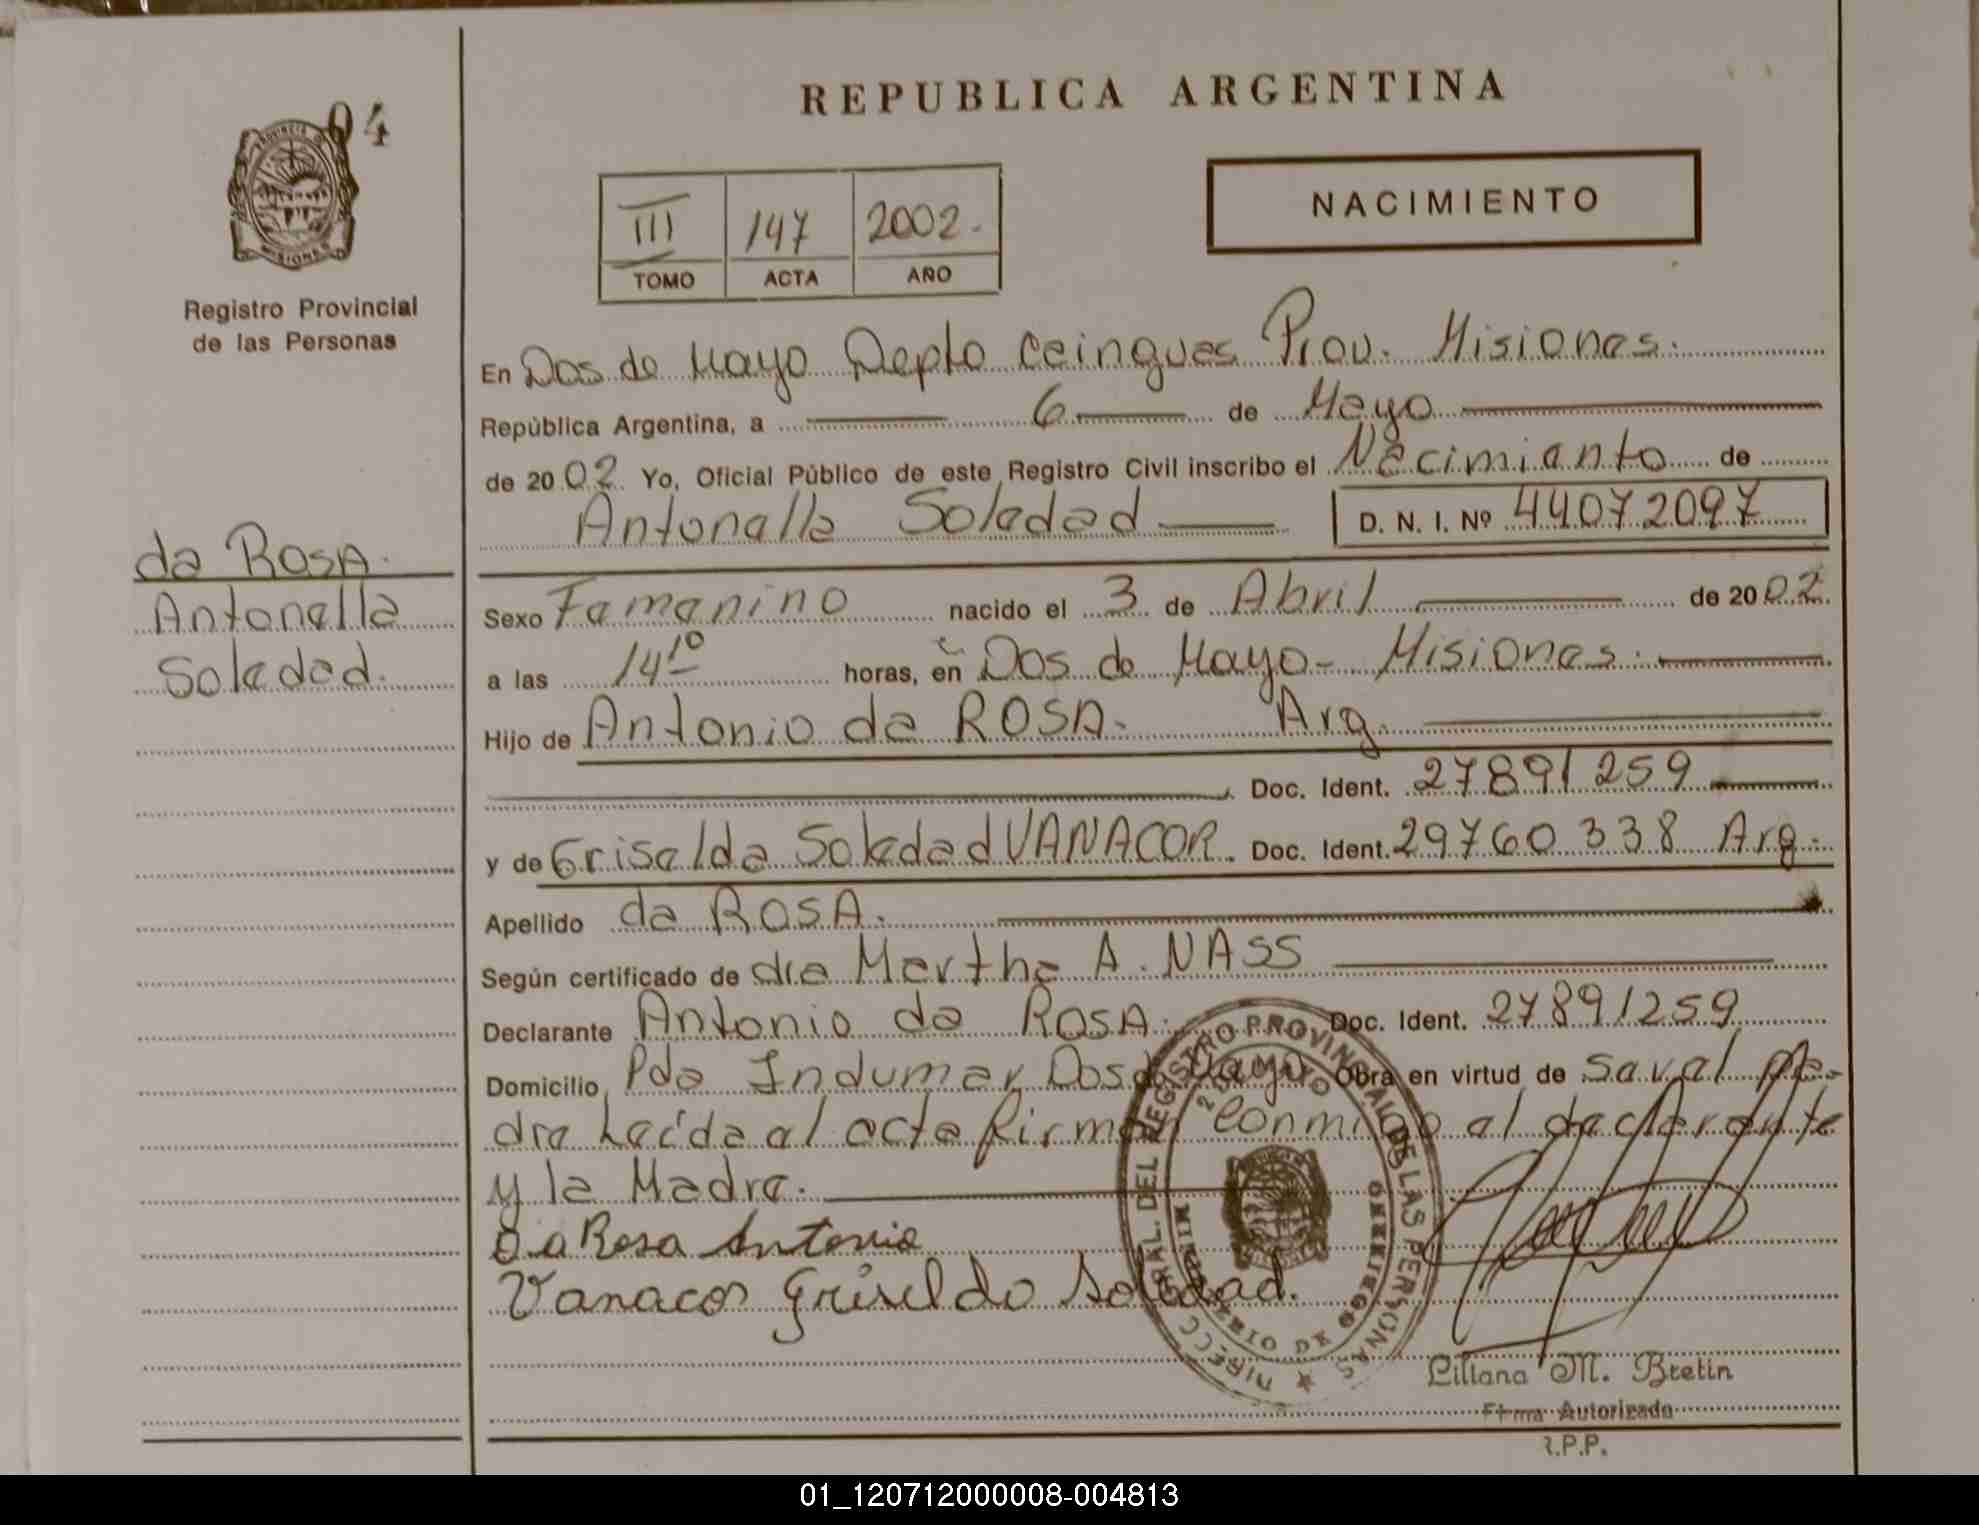 04
PROVINCIA DE MISIONES
Registro Provincial
de las Personas
REPUBLICA ARGENTINA
III 147 2002.
TOMO ACTA AÑO
NACIMIENTO
En Dos de Mayo Depto Caingues Prov. Misiones.
República Argentina, a 6 de Mayo
de 2002. Yo, Oficial Público de este Registro Civil inscribo el Nacimiento de
Antonella Soledad D. N. I. Nº 44072097
da ROSA.
Antonella
Soledad.
Sexo Femenino nacido el 3 de Abril de 2002.
a las 14 10 horas, en Dos de Mayo - Misiones.
Hijo de Antonio da ROSA. Arg.
Doc. Ident. 27891259
y de Griselda Soledad VANACOR. Doc. Ident. 29760338 Arg.
Apellido da ROSA.
Según certificado de dra Martha A. NASS
Declarante Antonio da ROSA. Doc. Ident. 27891259
Domicilio Pda Indumar Dos de Mayo Obra en virtud de ser el pa-
dre Leída el acta firman conmigo el declarante
y la Madre.
Da Rosa Antonio
Vanacor Griselda Soledad.
DIRECC. GRAL. DEL REGISTRO PROVINCIAL DE LAS PERSONAS
MINISTERIO DE GOBIERNO
2 DE MAYO
Liliana M. Bretin
Firma Autorizada
R.P.P.
01_120712000008-004813